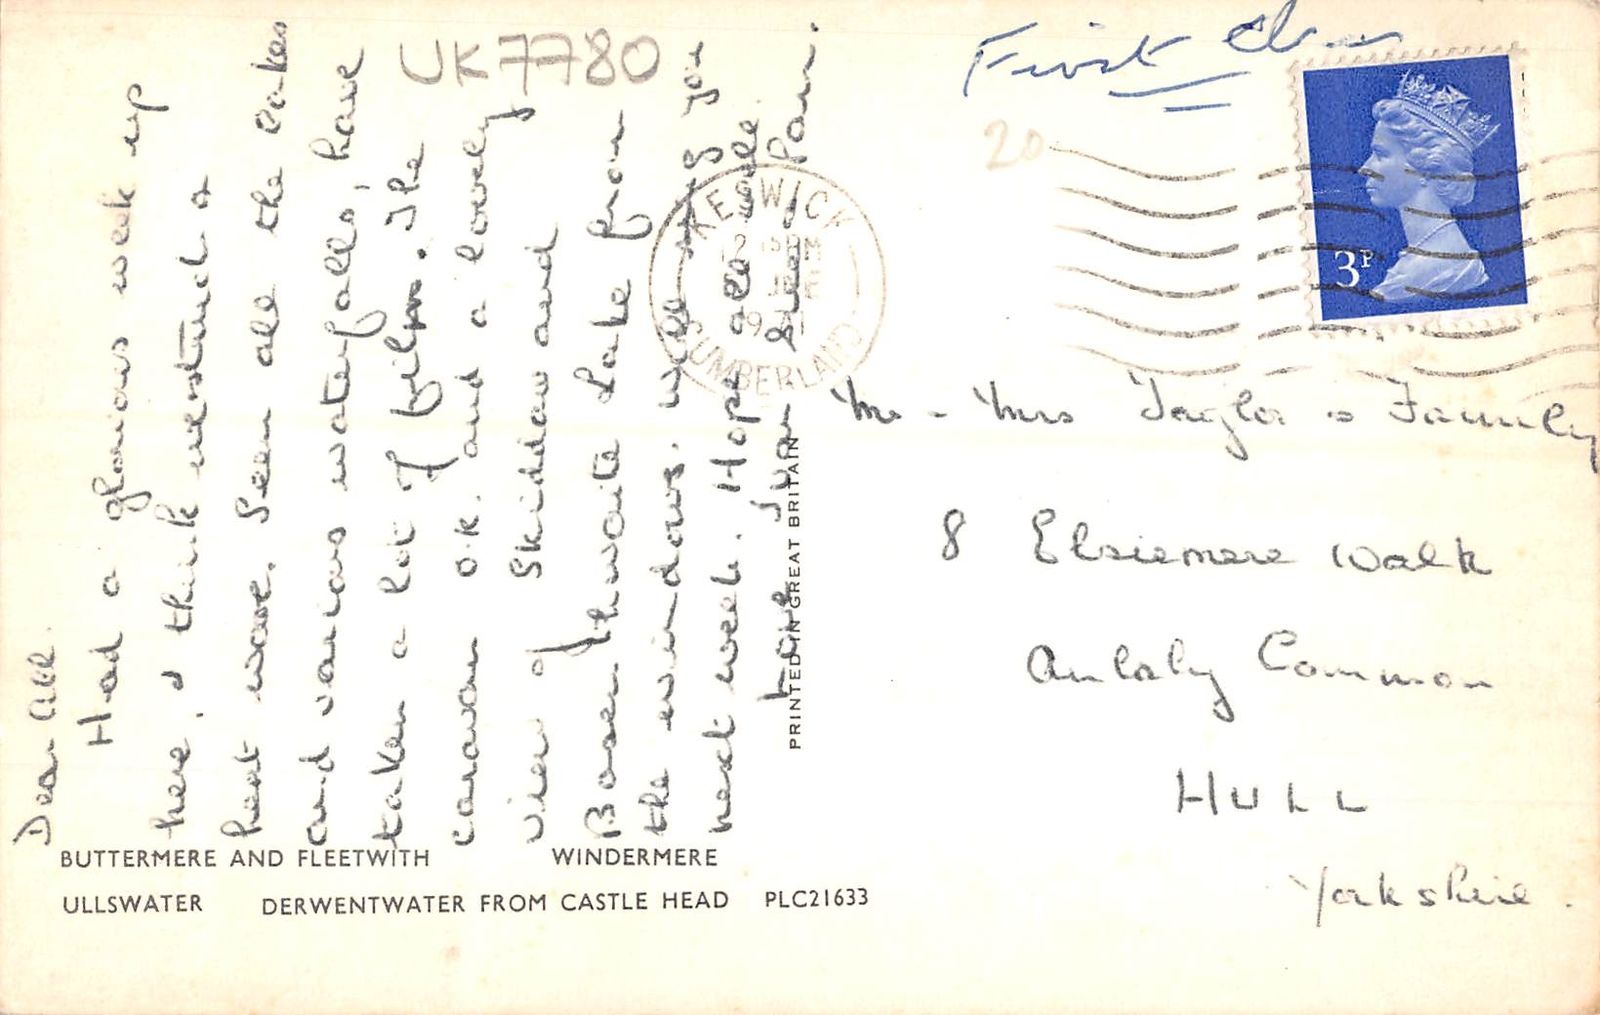 UK7780
First Class
20
3P
KESWICK
CUMBERLAND
Dear all.
Had a glorious week up
here. I think we struck a
heat wave. Seen all the Lakes
and various waterfalls, have
taken a lot of films. The
caravan O.K. and a lovely
view of Skiddaw and
Bassenthwaite Lake from
the windows. will ring you
next week. Hope all well.
Love
PRINTED IN GREAT BRITAIN
Mr - Mrs Taylor & Family
8 Elsiemere Walk
Anlaby Common
HULL
Yorkshire.
BUTTERMERE AND FLEETWITH WINDERMERE
ULLSWATER DERWENTWATER FROM CASTLE HEAD PLC21633